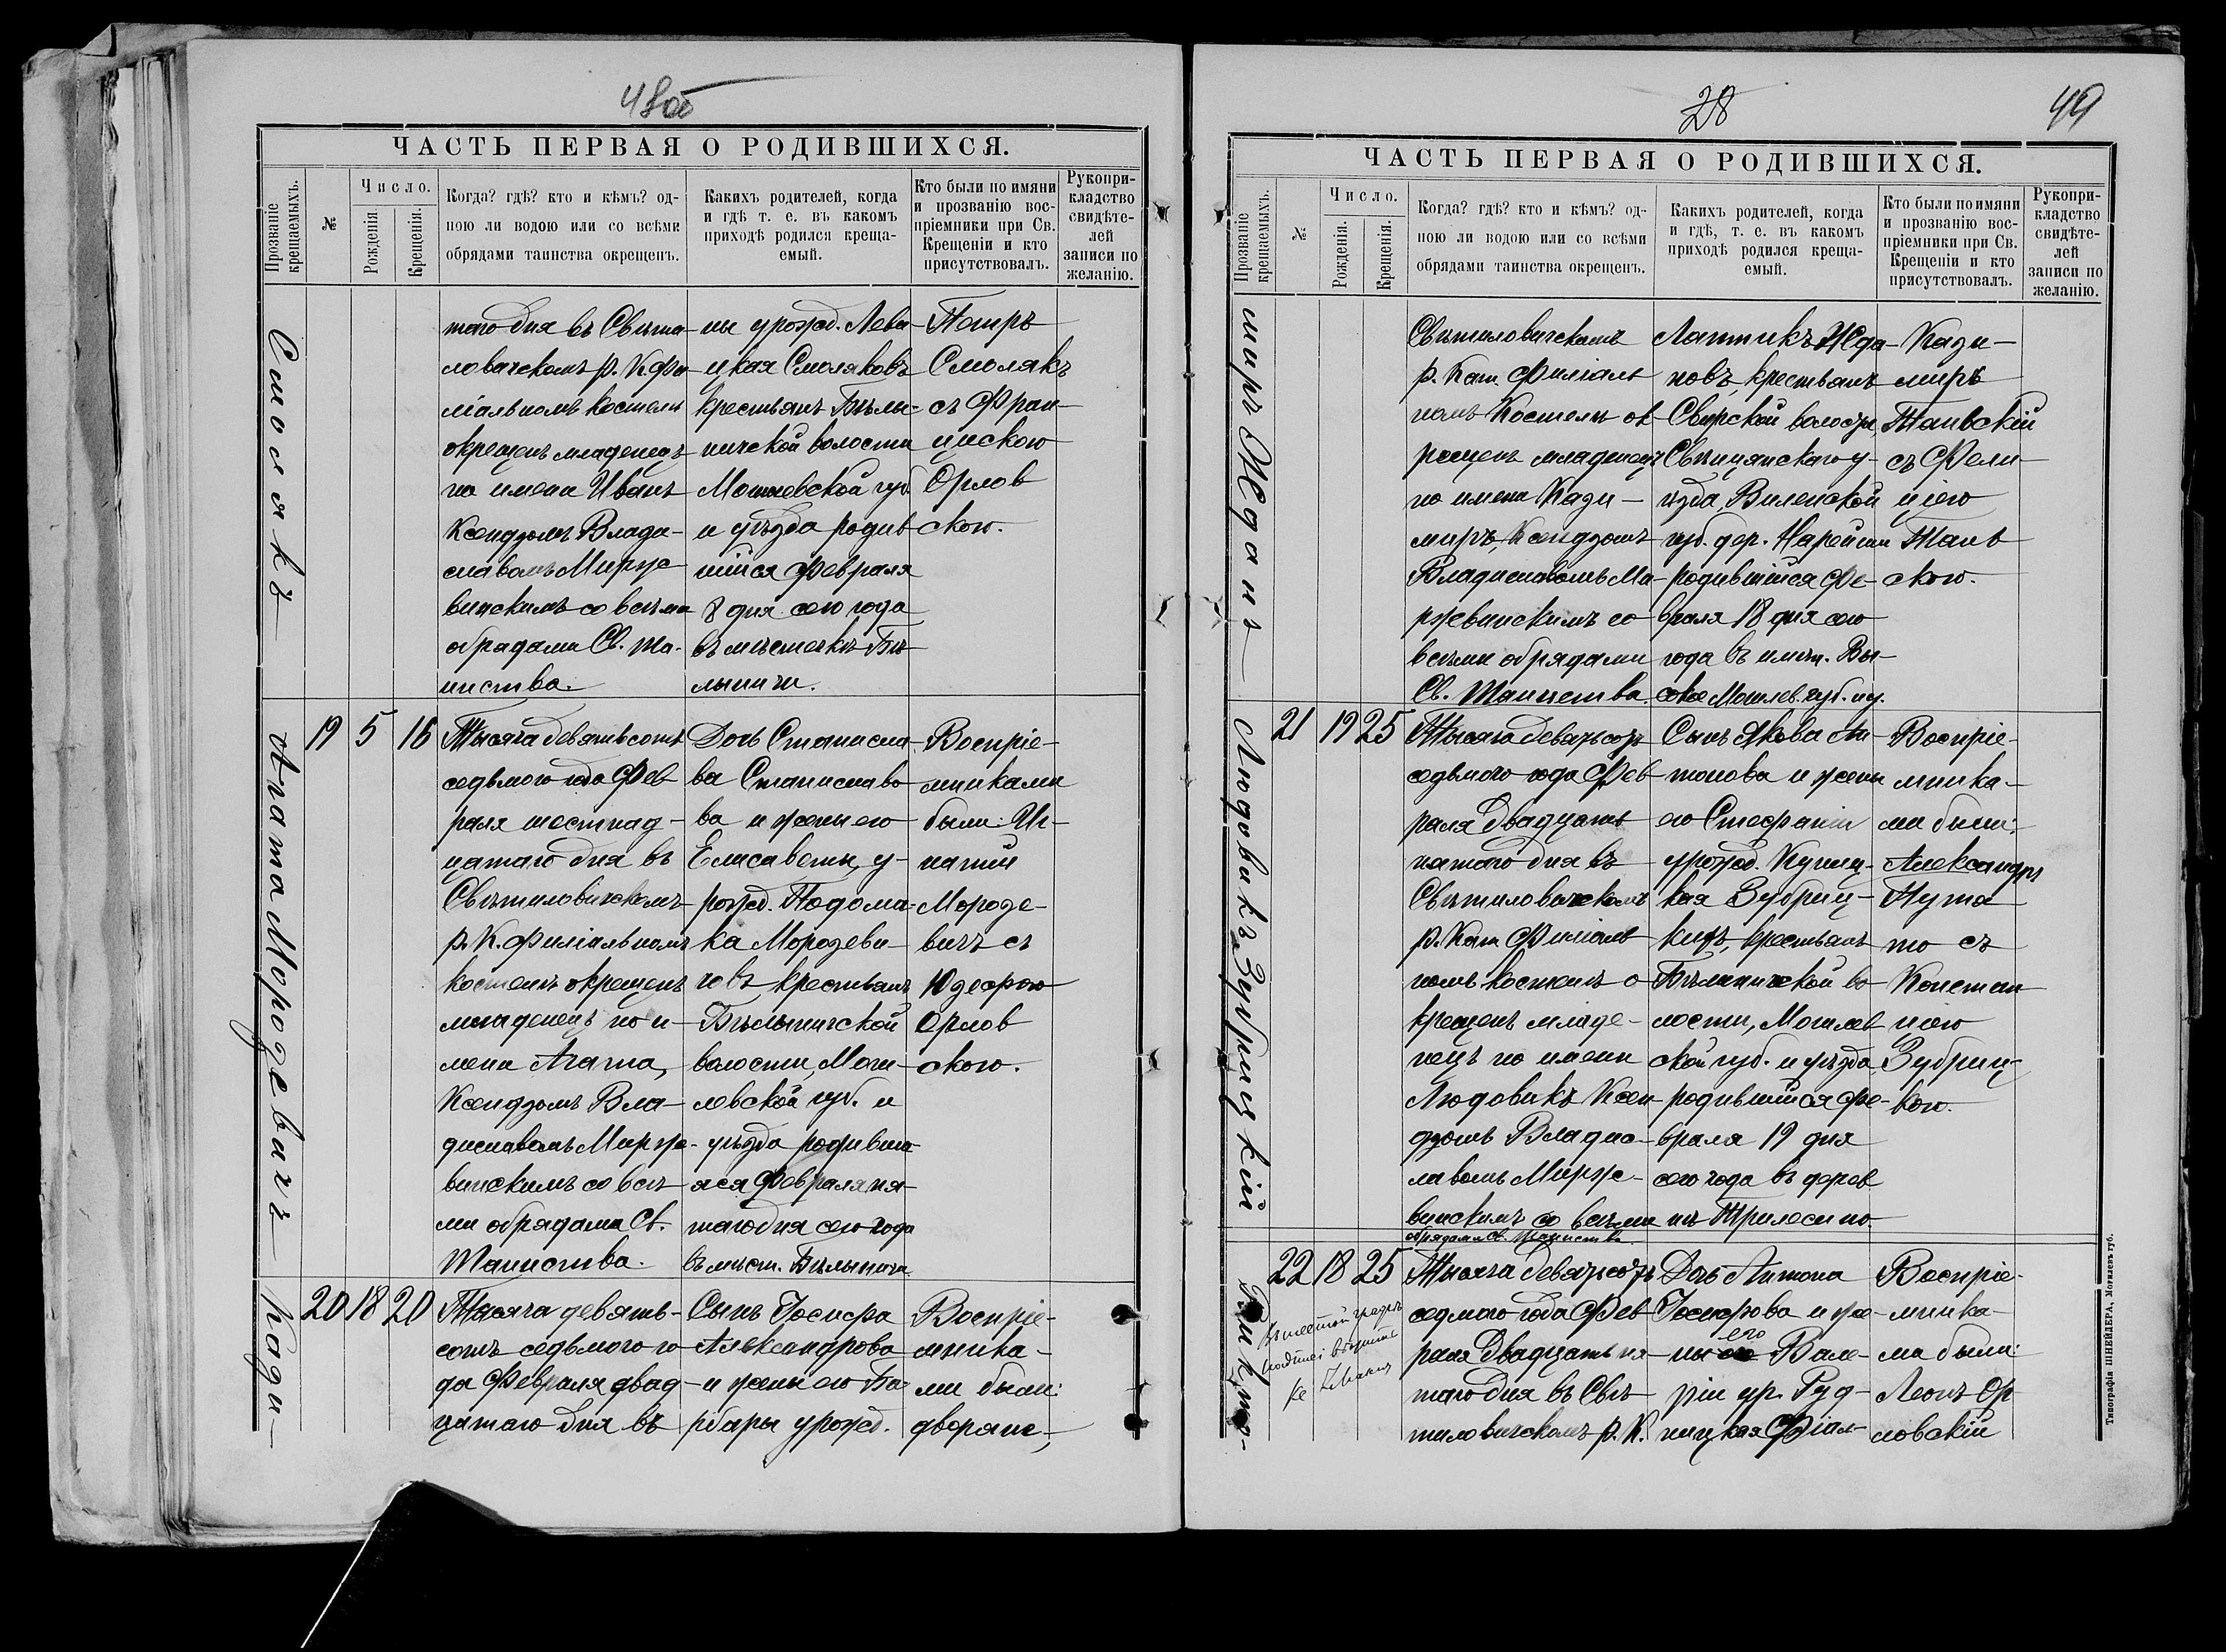 48об
ЧАСТЬ ПЕРВАЯ О РОДИВШИХСЯ.
Прозваніе крещаемыхъ.
№
Число.
Рожденія.
Крещенія.
Когда? гдѣ? кто и кѣмъ? од-
ною ли водою или со всѣми
обрядами таинства окрещенъ.
Какихъ родителей, когда
и гдѣ т. е. въ какомъ
приходѣ родился креща-
емый.
Кто были по имяни
и прозванію вос-
пріемники при Св.
Крещеніи и кто
присутствовалъ.
Рукопри-
кладство
свидѣте-
лей
записи по
желанію.
Смолякъ
таго дня въ Свѣти-
ловичскомъ р. К. Фи-
ліальномъ костелѣ
окрещенъ младенецъ
по имени Иванъ
Ксендзомъ Влади-
славомъ Мирже-
винскимъ со всѣми
обрядами Св. Та-
инства.
ны урожд. Леви-
цкая Смоляковъ
крестьянъ Бѣлы-
ничской волости
Могилевской губ
и уѣзда родив
шійся Февраля
8 дня сего года
въ мѣстечкѣ Бѣ-
лыничи.
Петръ
Смолякъ
съ Фран-
циской
Орлов
скою.
Агата Морозевичъ
19 5 16
Тысяча девятьсотъ
седьмого года Фев
раля шестнад-
цатаго дня въ
Свѣтиловичскомъ
р. К. Филіальномъ
костелѣ окрещенъ
младенецъ по и-
мени Агата,
Ксендзомъ Вла-
диславомъ Мирже-
винскимъ со всѣ
ми обрядами Св.
Таинства.
Дочь Станисла-
ва Станиславо
ва и жены его
Елисаветы, у-
рожд. Подома-
ка Морозеви-
човъ крестьянъ
Бѣлыничской
волости, Моги-
левской губ. и
уѣзда родивша-
яся Февраля пя-
таго дня сего года
въ мѣст. Бѣлыничи
Воспріе-
мниками
были: Иг-
натій
Морозе-
вичъ съ
Юзефою
Орлов
скою.
Кази-
20 18 20
Тысяча девять-
сотъ седьмого го
да Февраля двад-
цатаго дня въ
Сынъ Іосифа
Александрова
и жены его Ба-
рбары урожд.
Воспріе-
мника-
ми были:
дворяне,
28
49
ЧАСТЬ ПЕРВАЯ О РОДИВШИХСЯ.
Прозваніе крещаемыхъ.
№
Число.
Рожденія.
Крещенія.
Когда? гдѣ? кто и кѣмъ? од-
ною ли водою или со всѣми
обрядами таинства окрещенъ.
Какихъ родителей, когда
и гдѣ, т. е. въ какомъ
приходѣ родился креща-
емый.
Кто были по имяни
и прозванію вос-
пріемники при Св.
Крещеніи и кто
присутствовалъ.
Рукопри-
кладство
свидѣте-
лей
записи по
желанію.
миръ Жданъ
Свѣтиловичскомъ
р. Кат. Филіаль
номъ Костелѣ ок
рещенъ младенецъ
по имени Кази-
миръ, Ксендзомъ
Владиславомъ Ми-
ржевинскимъ со
всѣми обрядами
Св. Таинства.
Лаптикъ Жда-
новъ, крестьянъ
Свирской волости,
Свѣнцянскаго у-
ѣзда, Виленской
губ. дер. Нарейши
родившійся Фе-
враля 18 дня сего
года въ имѣн. Вы-
сокое Могилев. губ. и у.
Кази-
миръ
Таньскій
съ Фели-
ціею
Тань
скою.
Людовикъ Зубрицкій
21 19 25
Тысяча девятьсотъ
седьмого года Фев
раля двадцать
пятаго дня въ
Свѣтиловичскомъ
р. Кат. Филіаль
номъ костелѣ о
крещенъ младе-
нецъ по имени
Людовикъ Ксен
дзомъ Владис-
лавомъ Мирже-
винскимъ со всѣми
обрядами Св. Таинства.
Сынъ Якова Ан-
тонова и жены
его Стефаніи
урожд. Куниц-
кая Зубриц-
кихъ, крестьянъ
Бѣлыничской во
лости, Могилев
ской губ. и уѣзда,
родившійся Фе-
враля 19 дня
сего года въ дерев
нѣ Трилесино
Воспріе-
мника-
ми были:
Александръ
Нута
то съ
Констан
ціею
Зубриц-
кою.
Викто-
22 18 25
Тысяча девятьсотъ
седмого года Фев
раля двадцать пя-
таго дня въ Свѣ-
тиловичскомъ р. К.
Дочь Антона
Іосифова и же-
ны его Вале-
ріи ур. Руд-
ницкая Фіал-
Воспріе-
мника-
ми были:
Леонъ Ор
ловскій
Типографія ШНЕЙДЕРА, Могилевъ губ.